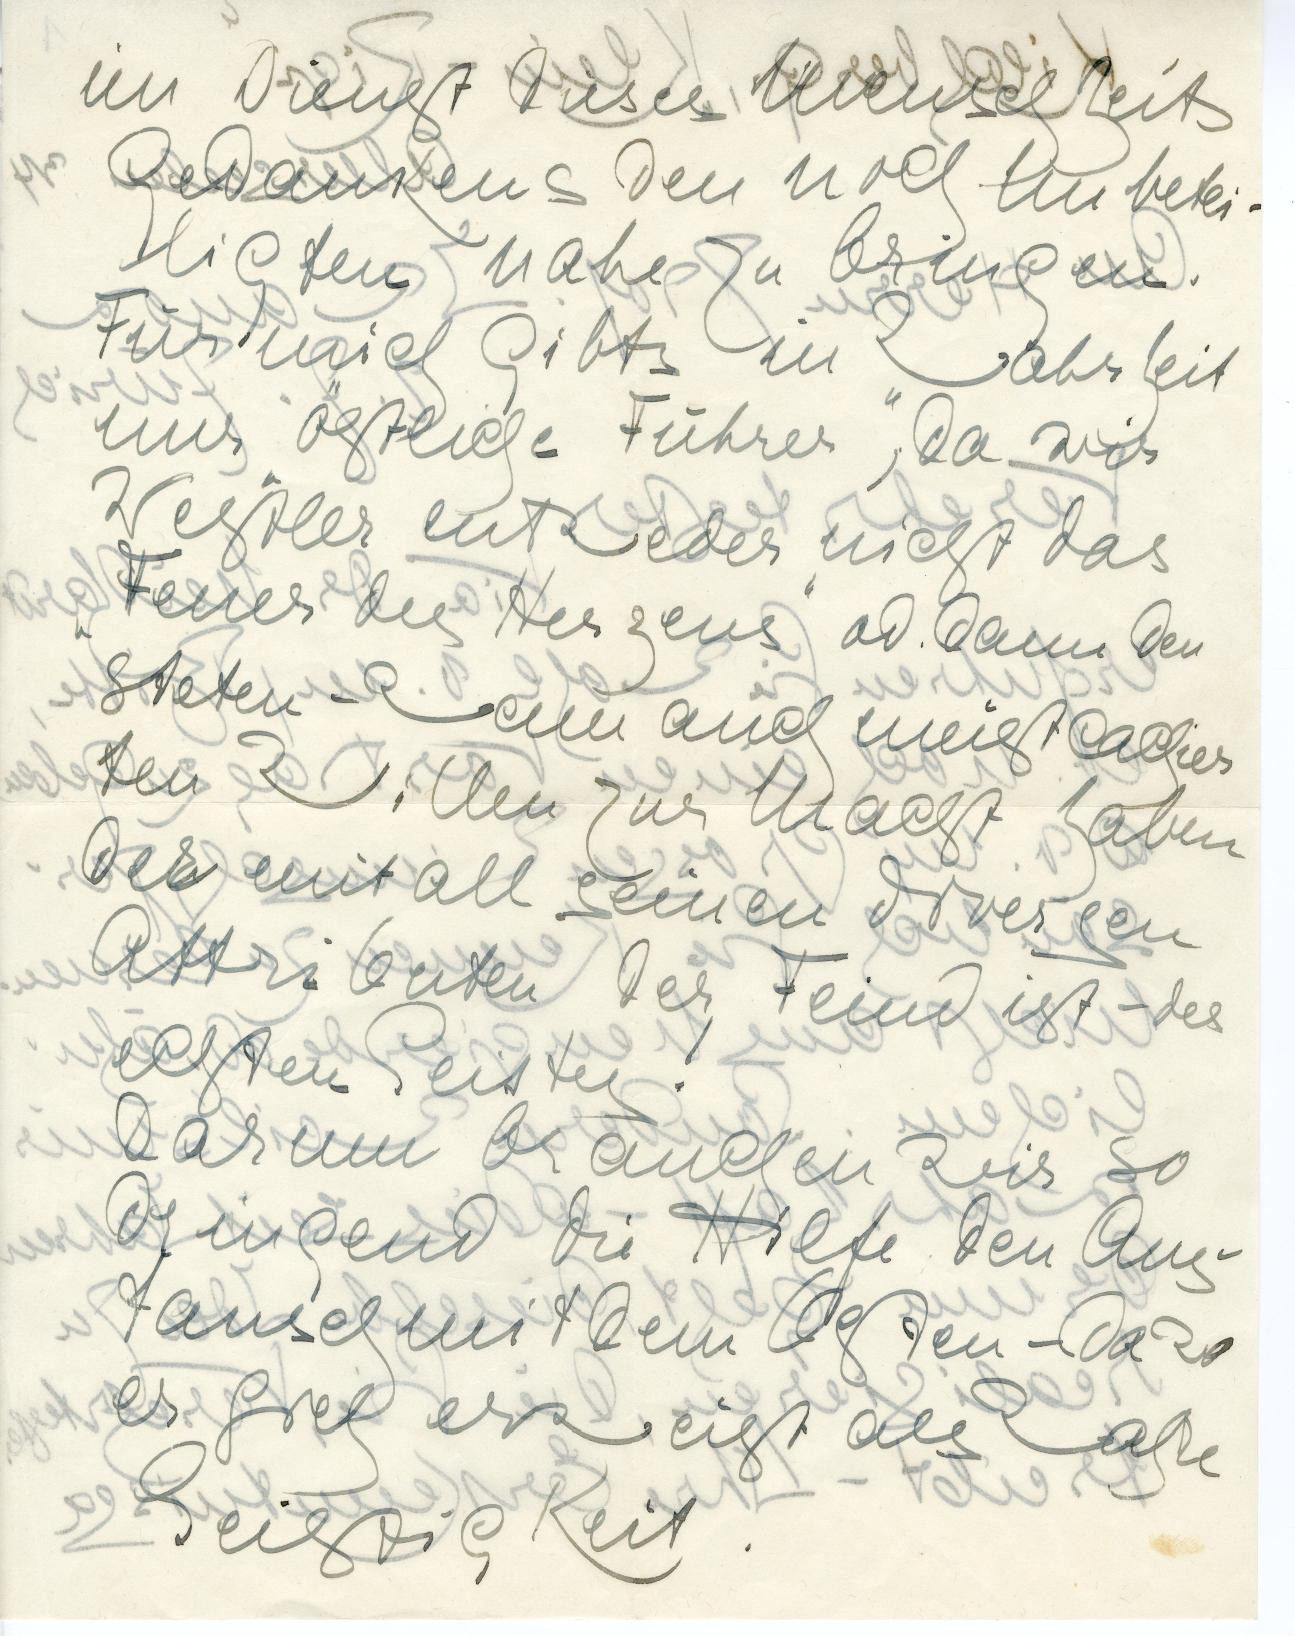 im Dienst dieses Menschheits
Gedankens den noch Unbetei-
ligten nahe zu bringen.
Für mich gibts in Wahrheit
nur "östliche Führer", da wir
Westler entweder nicht das
"Feuer des Herzens" od. dann den
steten - wenn auch meist cachier
ten Willen zur Macht haben
der mit all seinen diversen
Attributen der Feind ist - des
echten Geistes!
Darum brauchen wir so
dringend die Hilfe den Aus-
tausch mit dem Osten - da wo
er sich erweist als wahre
Geistigkeit.